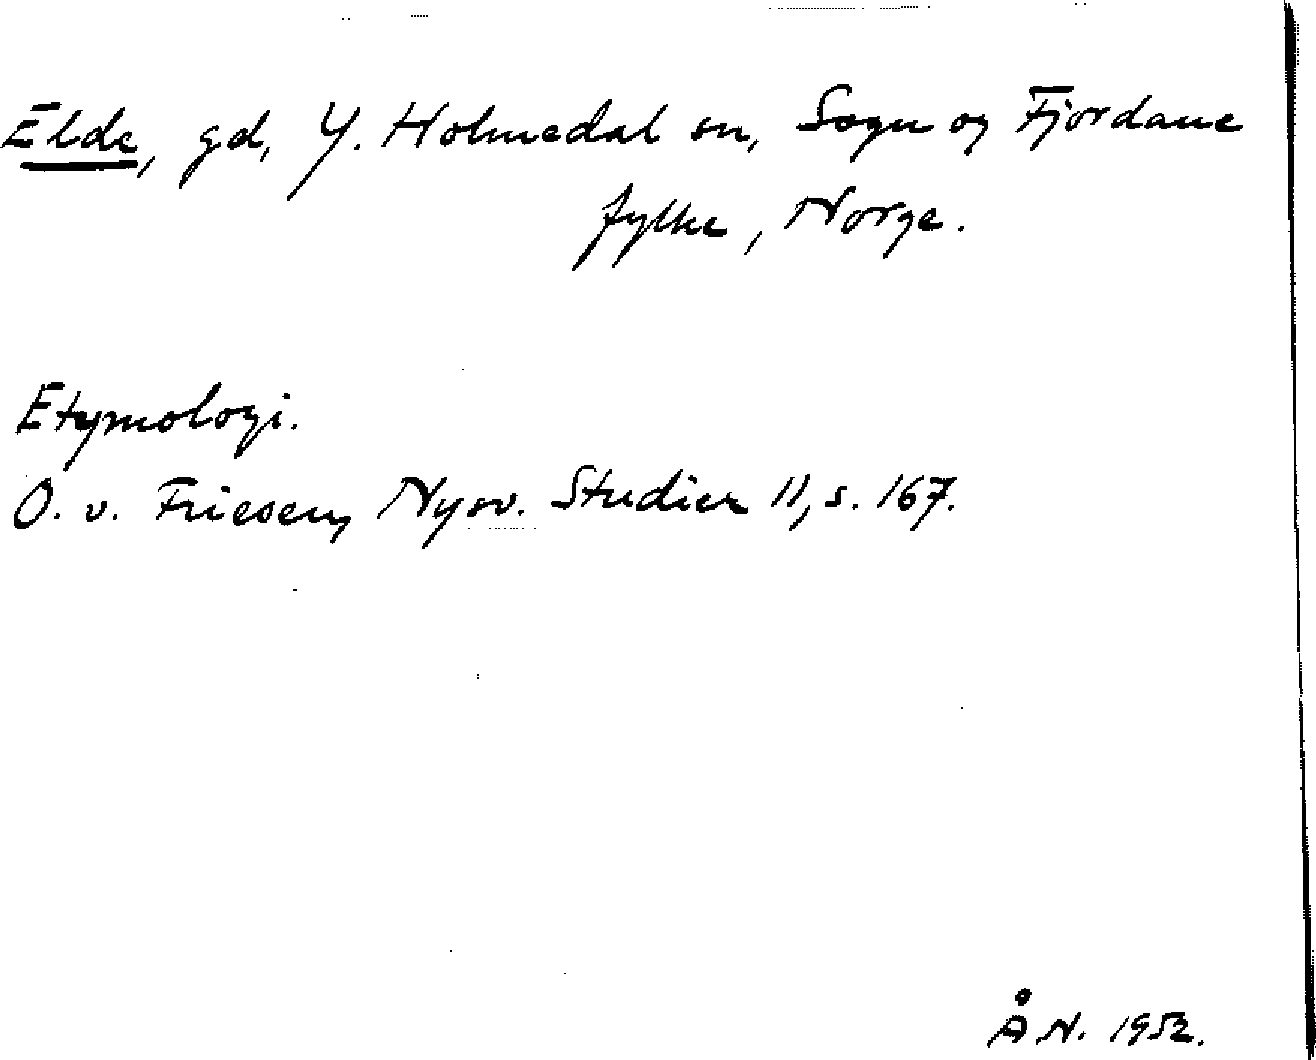 Elde, gd, Y. Holmedal sn, Sogn og Fjordane
fylke, Norge.
Etymologi.
O. v. Friesen, Nysv. Studier 11, s. 167.
Å N. 1952.